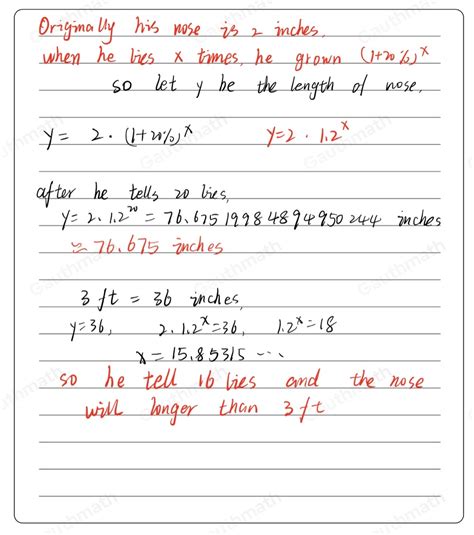 Originally his nose is 2 inches.
when he lies x times, he grown (1+20%)^x
so let y be the length of nose.
y = 2 · (1+20%)^x y=2 · 1.2^x
after he tells 20 lies,
y = 2 · 1.2^20 = 76.6751998484950244 inches
≈ 76.675 inches
3 ft = 36 inches,
y=36, 2 · 1.2^x=36, 1.2^x=18
x = 15.85315 ...
so he tell 16 lies and the nose
will longer than 3 ft